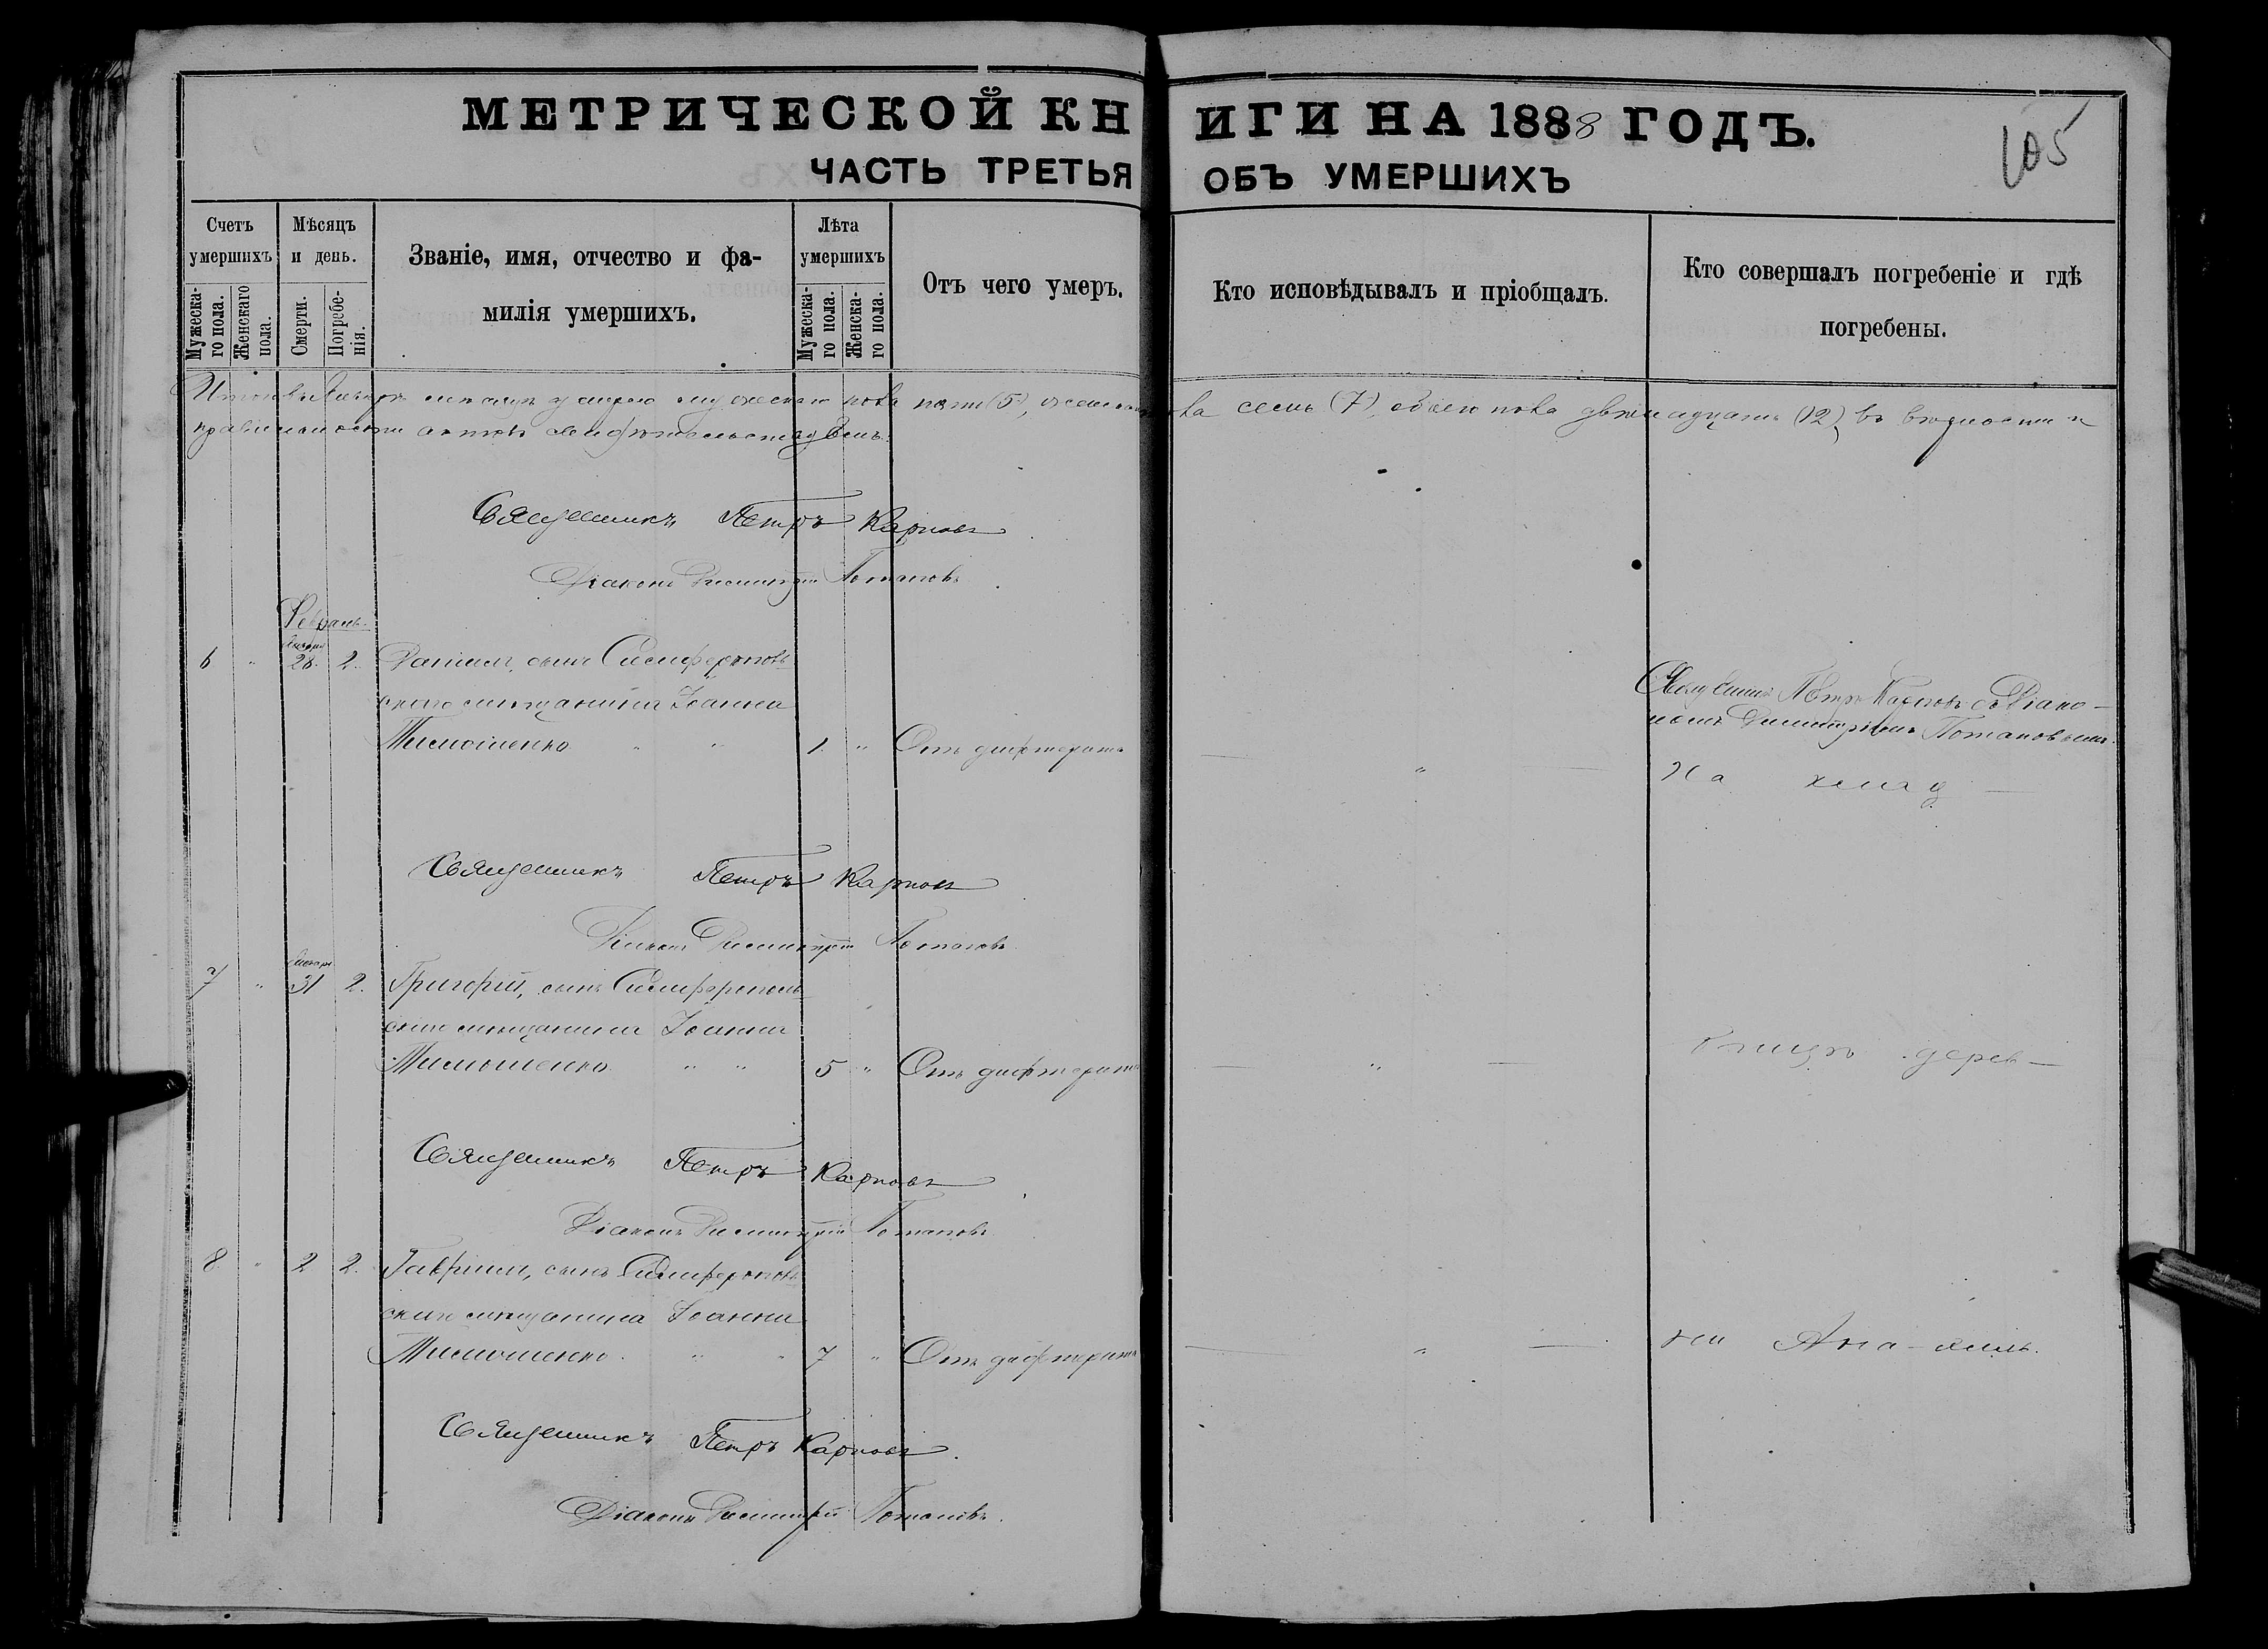 МЕТРИЧЕСКОЙ КНИГИ НА 1888 ГОДЪ.
105
ЧАСТЬ ТРЕТЬЯ ОБЪ УМЕРШИХЪ
Счетъ умершихъ.
Мужескаго пола.
Женскаго пола.
Мѣсяцъ и день.
Смерти.
Погребенія.
Званіе, имя, отчество и фамилія умершихъ.
Лѣта умершихъ
Мужескаго пола.
Женскаго пола.
Отъ чего умеръ.
Кто исповѣдывалъ и пріобщалъ.
Кто совершалъ погребеніе и гдѣ погребены.
Итого въ Январѣ мѣсяцѣ умерло мужескаго пола пять (5), женскаго пола семь (7), обоего пола двѣнадцать (12), въ вѣрности и
правильности актовъ свидѣтельствуемъ:
Священникъ Петръ Карповъ
Діаконъ Димитрій Потаповъ
Февраль.
6 " Января 28. 2. Даніилъ, сынъ Симферополь-
скаго мѣщанина Іоанна
Тимошенко " " 1. " Отъ дифтерита
— " —
Священникъ Петръ Карповъ съ Діако-
номъ Димитріемъ Потаповымъ.
На клад —
Священникъ Петръ Карповъ
Діаконъ Димитрій Потаповъ
7 " Января 31 2. Григорій, сынъ Симферополь-
скаго мѣщанина Іоанна
Тимошенко " " 5 " Отъ дифтерита
— " —
бищѣ дерев —
Священникъ Петръ Карповъ
Діаконъ Димитрій Потаповъ
8 " 2 2. Гавріилъ, сынъ Симферополь-
скаго мѣщанина Іоанна
Тимошенко. " " 7 " Отъ дифтерита
— " —
ни
Священникъ Петръ Карповъ.
Діаконъ Димитрій Потаповъ.